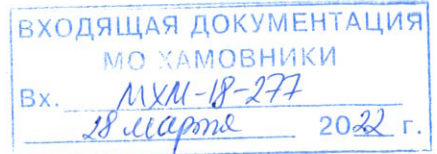 ВХОДЯЩАЯ ДОКУМЕНТАЦИЯ
МО ХАМОВНИКИ
Вх. МХМ-18-277
28 марта 2022 г.